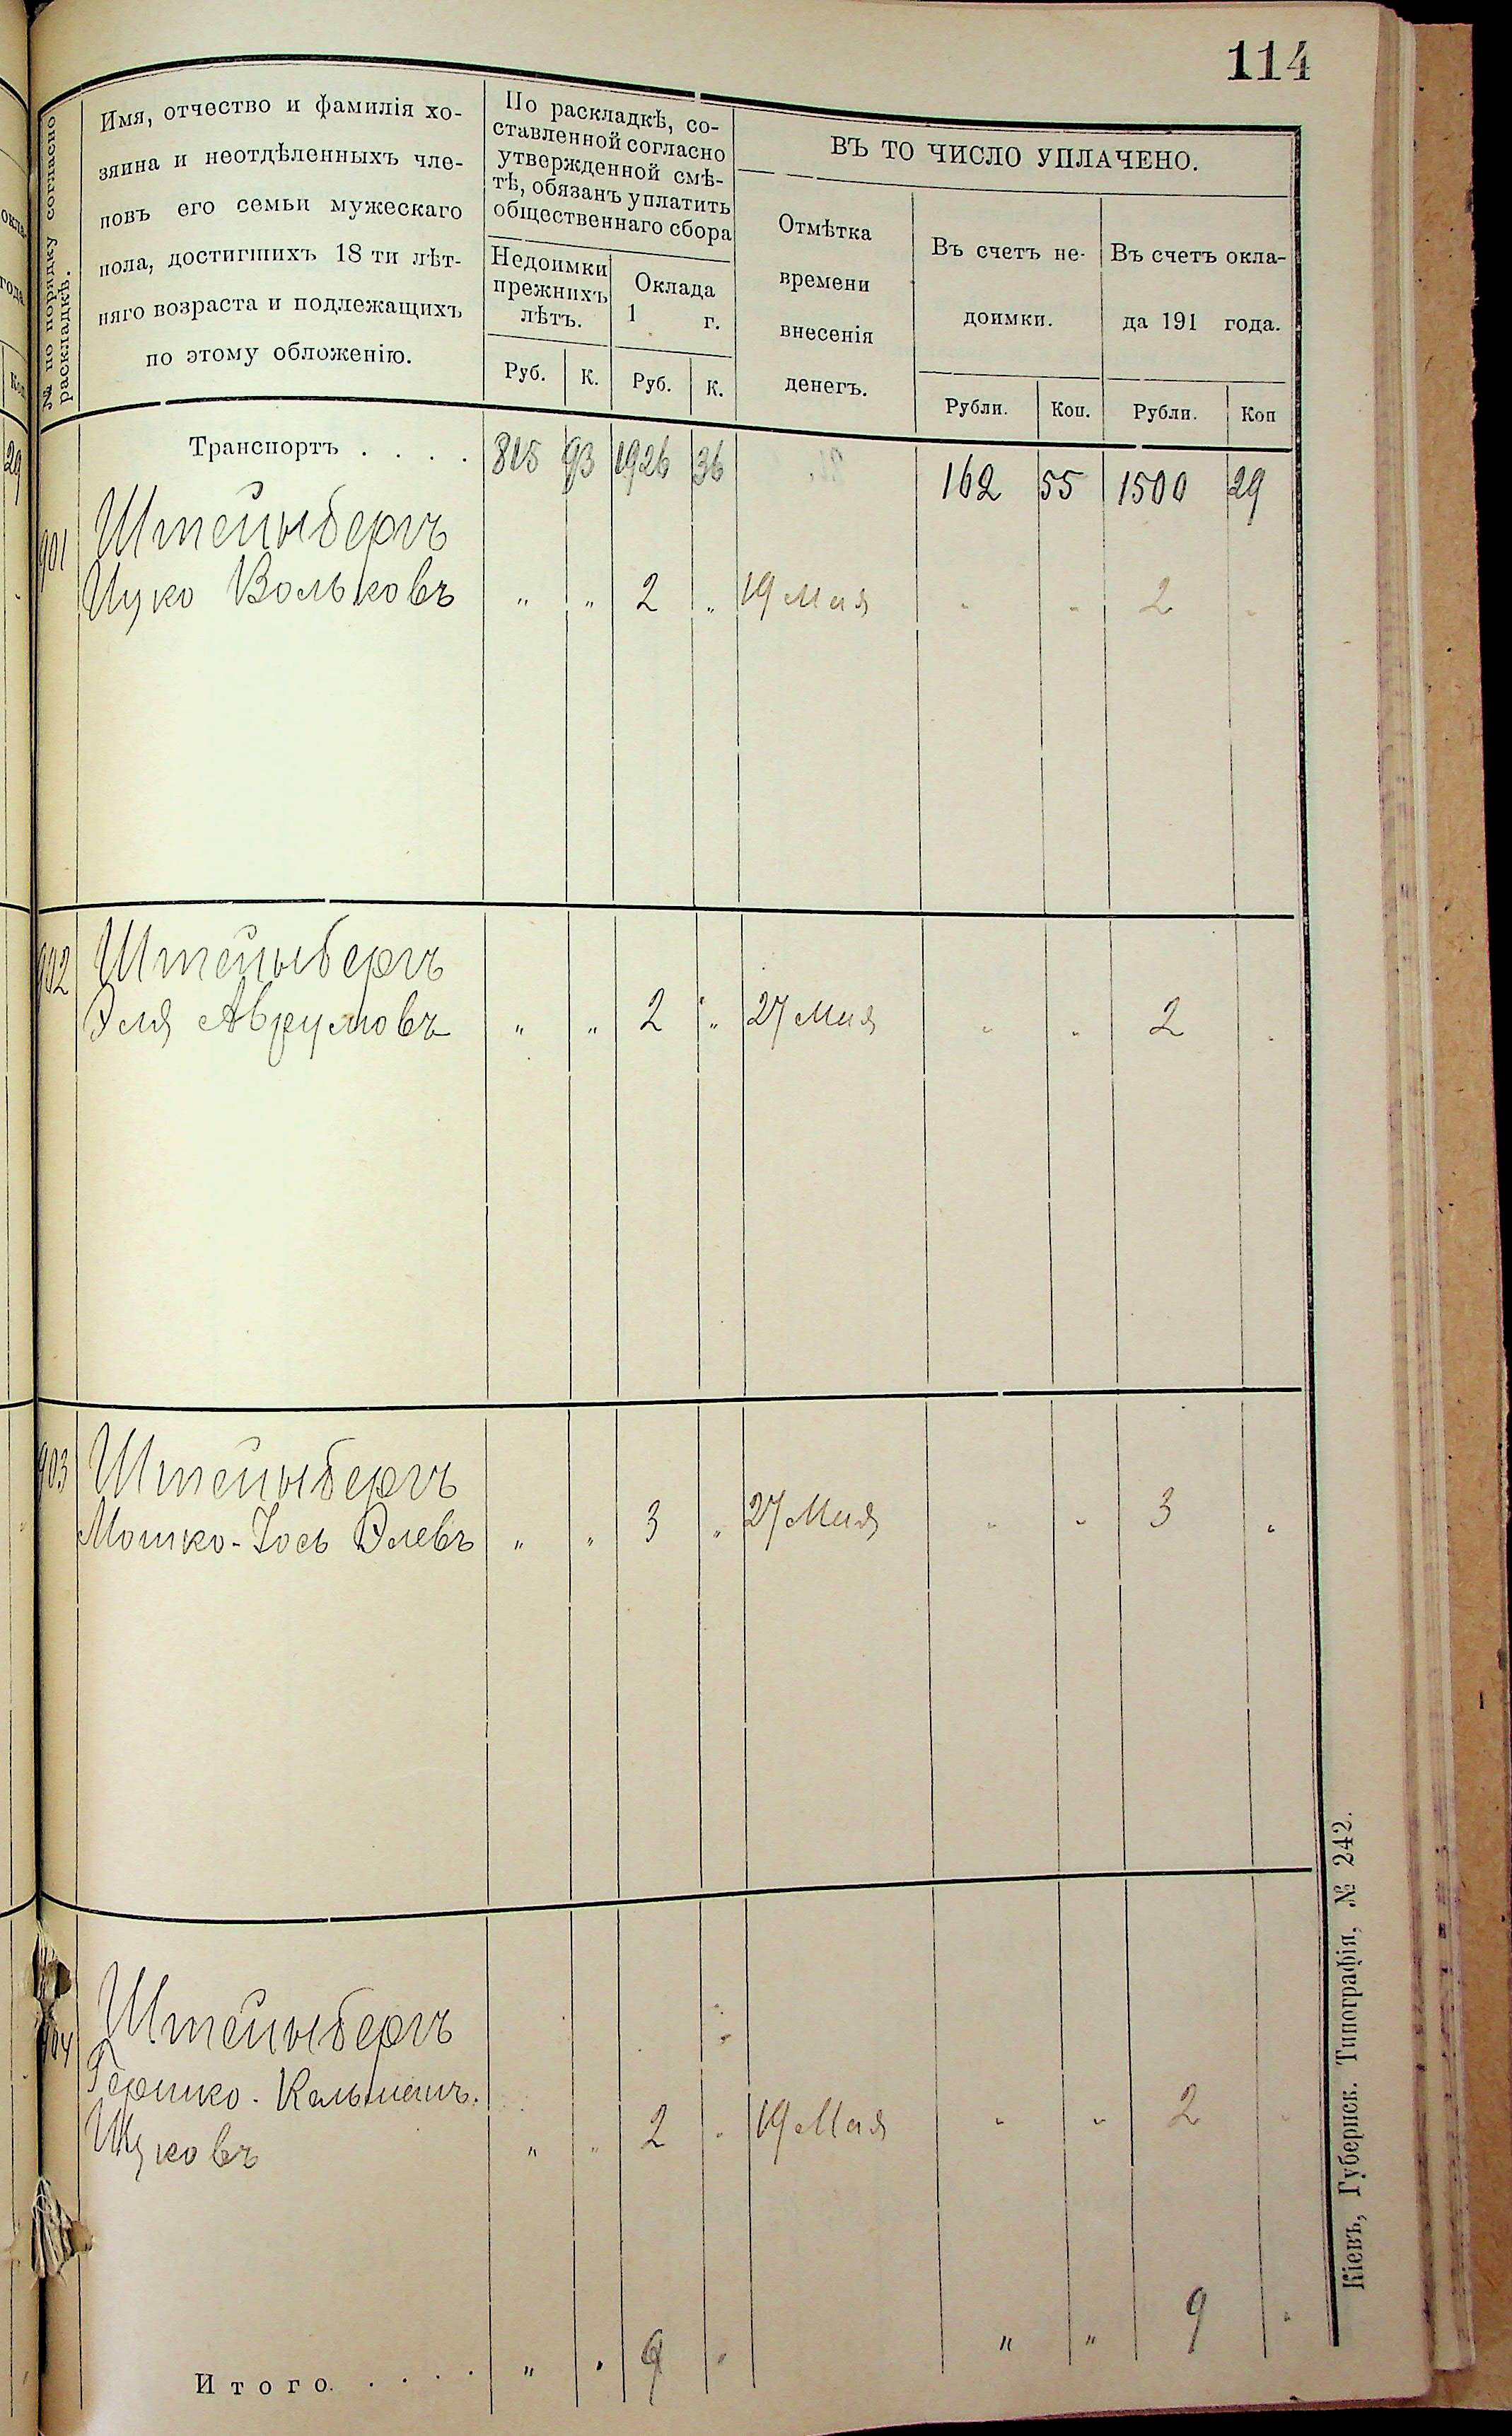 114
№ по порядку согласно
раскладкѣ.
Имя, отчество и фамилія хо-
зяина и неотдѣленныхъ чле-
новъ его семьи мужескаго
пола, достигшихъ 18 ти лѣт-
няго возраста и подлежащихъ
по этому обложенію.
По раскладкѣ, со-
ставленной согласно
утвержденной смѣ-
тѣ, обязанъ уплатить
общественнаго сбора
Недоимки
прежнихъ
лѣтъ.
Оклада
1 г.
Руб. К. Руб. К.
ВЪ ТО ЧИСЛО УПЛАЧЕНО.
Отмѣтка
времени
внесенія
денегъ.
Въ счетъ не-
доимки.
Въ счетъ окла-
да 191 года.
Рубли. Коп. Рубли. Коп
Транспортъ . . . . 815 93 1926 36 162 55 1500 29
901 Штейнбергъ
Ицко Вольковъ " " 2 " 19 Мая " " 2 "
902 Штейнбергъ
Эля Аврумовъ " " 2 " 27 Мая " " 2 "
903 Штейнбергъ
Мошко-Іось Элевъ " " 3 " 27 Мая " " 3 "
904 Штейнбергъ
Гершко-Кальманъ
Ицковъ " " 2 " 19 Мая " " 2 "
Итого. . . . . " " 9 " " " 9 "
Кіевъ, Губернск. Типографія, № 242.